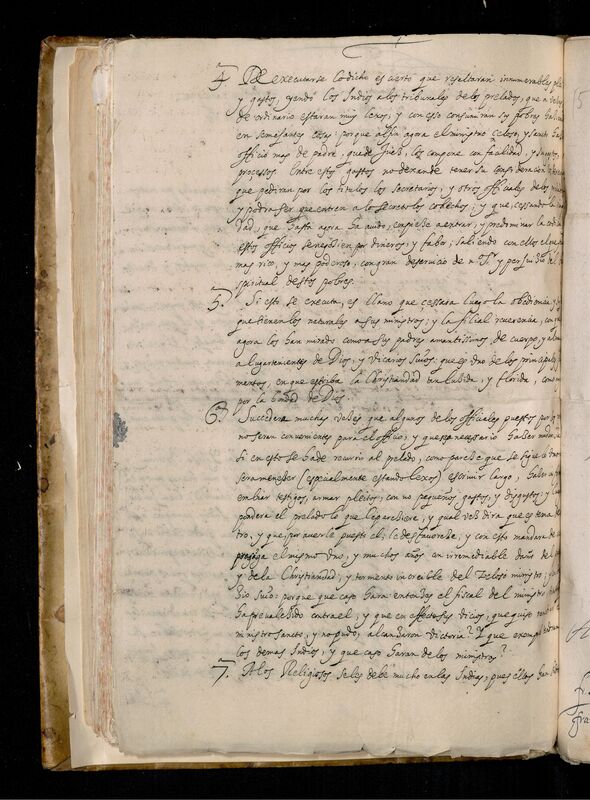 4. De executarse lo dicho es cierto que resultaran innumerables
y gastos, yendo los Indios a los tribunales de los prelados, que
de ordinario estaran muy lexos, y con esso consumiran su pobre
en semejantes cosas: porque assi agora el ministro zeloso, y
officio mas de padre, que de Juez, los compone con facilidad, y sin
processos. Entre estos gastos no dexan de tener su consideracion
que pediran por los titulos los Secretarios, y otros officiales de los
y podra ser que entren a lo secreto los cohechos; y que, cessando la
dad, que hasta agora ha auido, empieze a entrar, y predominar la
estos officios se negocien por dineros, y fabor; saliendo con ellos el que
mas rico, y mas poderoso, con gran deseruicio de n. Sr. y perjuidio
spiritual destos pobres.
5. Si esto se executa, es llano que cessara luego la obediencia, y
que tienen los naturales a sus ministros; y la filial reuerencia, con
agora los han mirado como a sus padres amantissimos de cuerpo, y
a lugartenientes de Dios, y vicarios suios: que es vno de los principales
mentos, en que estriba la Christiandad tan luzida, y florida, como
por la bondad de Dios.
6. Succedera muchas vezes que algunos de los officiales puestos por
no seran conuenientes para el officio; y que sea necessario hauer
si en esto se ha de recurrir al prelado, como parece que se sigue
sera menester (especialmente estando lexos) escriuir largo, haber
embiar testigos, armar pleitos, con no pequeños gastos, y disgustos; y
pondera el prelado lo que le parechiere, y qual vez dira que es tema del
tro, y que, por auerle puesto el, le desfauorese, y con esto mandara
prosiga el mismo vno, y muchos años en irremediable daño de
y de la Christiandad, y tormento increible del zeloso ministro;
dio suio: porque que caso hara entonces el fiscal de el ministro
ha preualecido contra el; y que en effecto sus vicios, que quiso
ministro sancto, y no pudo, alcanzaron victoria? Y que exemplo
los demas Indios; y que caso haran de los ministros?
7. A los Religiosos se les debe mucho en las Indias, pues ellos han